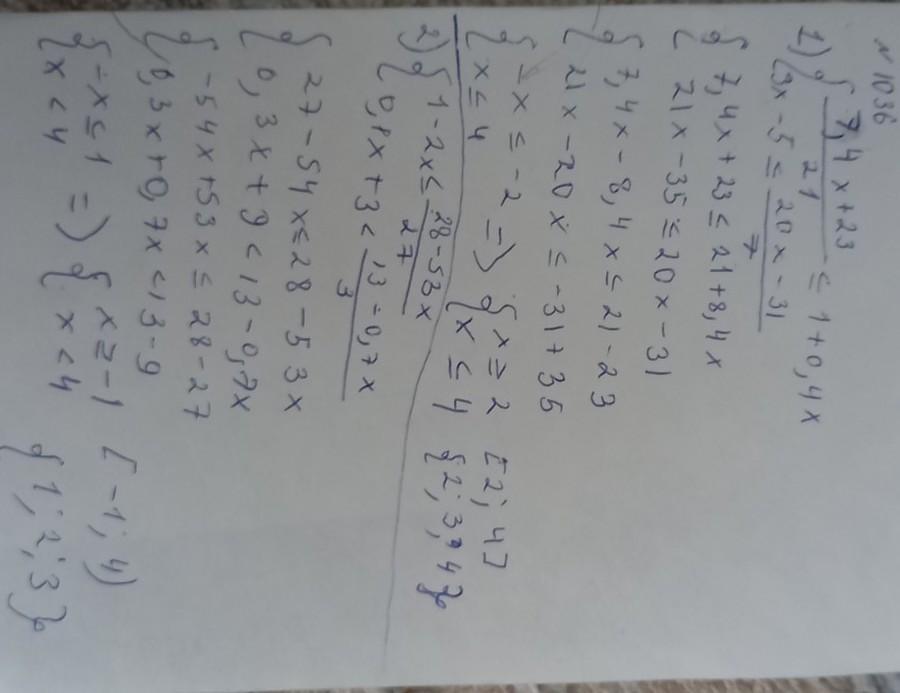 N 1036
1) { 7,4x+23 / 21 ≤ 1+0,4x
3x-5 ≤ 20x-31 / 7
{ 7,4x+23 ≤ 21+8,4x
21x-35 ≤ 20x-31
{ 7,4x-8,4x ≤ 21-23
21x-20x ≤ -31+35
{ -x ≤ -2 => { x ≥ 2 [2; 4]
x ≤ 4 x ≤ 4 {2; 3; 4}
2) { 1-2x ≤ 28-53x / 27
0,1x+3 < 13-0,7x / 3
{ 27-54x ≤ 28-53x
0,3x+9 < 13-0,7x
{ -54x+53x ≤ 28-27
0,3x+0,7x < 13-9
{ -x ≤ 1 => { x ≥ -1 [-1; 4)
x < 4 x < 4 {1; 2; 3}